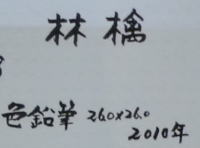 林檎
色鉛筆 26.0×26.0
2010年